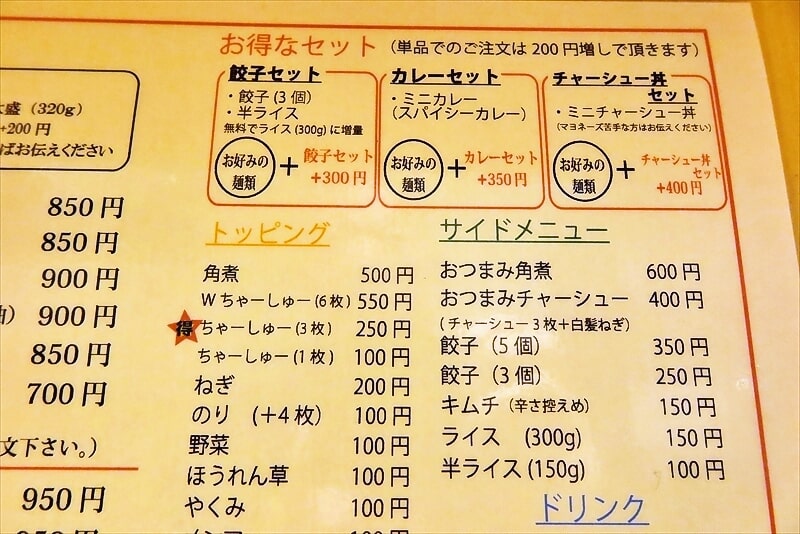 お得なセット（単品でのご注文は200円増しで頂きます）
餃子セット
・餃子(3個)
・半ライス
無料でライス(300g)に増量
お好みの
麺類
+
餃子セット
+300円
カレーセット
・ミニカレー
（スパイシーカレー）
お好みの
麺類
+
カレーセット
+350円
チャーシュー丼
セット
・ミニチャーシュー丼
（マヨネーズ苦手な方はお伝えください）
お好みの
麺類
+
チャーシュー丼
セット
+400円
盛（320g）
+200円
ばお伝えください
850円
850円
900円
900円
850円
700円
文下さい。）
950円
トッピング
角煮 500円
Wちゃーしゅー(6枚) 550円
得 ちゃーしゅー(3枚) 250円
ちゃーしゅー(1枚) 100円
ねぎ 200円
のり （＋4枚） 100円
野菜 100円
ほうれん草 100円
やくみ 100円
サイドメニュー
おつまみ角煮 600円
おつまみチャーシュー 400円
（チャーシュー3枚＋白髪ねぎ）
餃子（5個） 350円
餃子（3個） 250円
キムチ（辛さ控えめ） 150円
ライス (300g) 150円
半ライス(150g) 100円
ドリンク